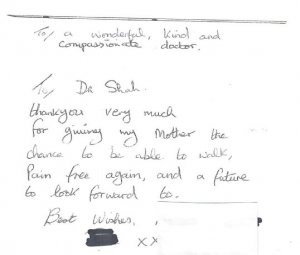 To/ a wonderful, kind and
compassionate doctor.
To/ Dr Shah.
thankyou very much
for giving my Mother the
chance to be able to walk,
Pain free again, and a future
to look forward to.
Best Wishes,
xx